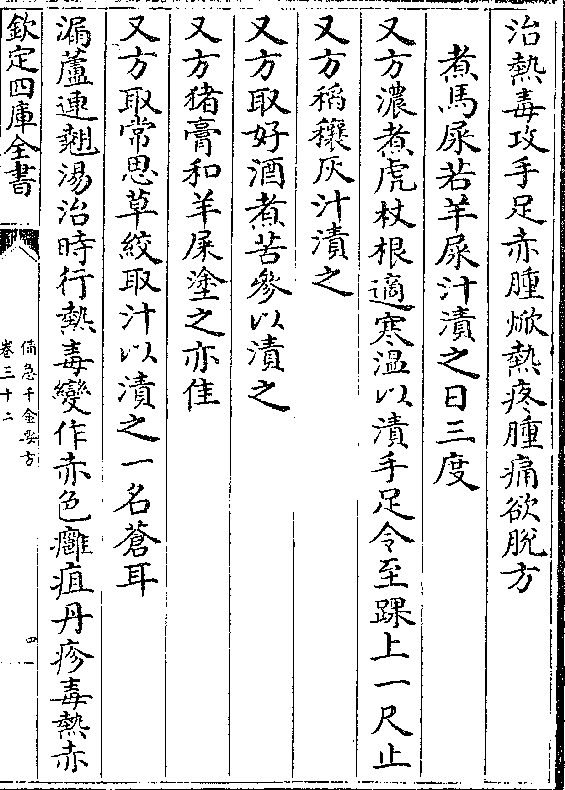 治熱毒攻手足赤腫焮熱疼腫痛欲脫方
煮馬屎若羊屎汁漬之日三度
又方濃煮虎杖根適寒温以漬手足令至踝上一尺止
又方稻穰灰汁漬之
又方取好酒煮苦參以漬之
又方猪膏和羊屎塗之亦佳
又方取常思草絞取汁以漬之一名蒼耳
漏蘆連翹湯治時行熱毒變作赤色癰疽丹疹毒熱赤
欽定四庫全書
備急千金要方
卷三十二
四